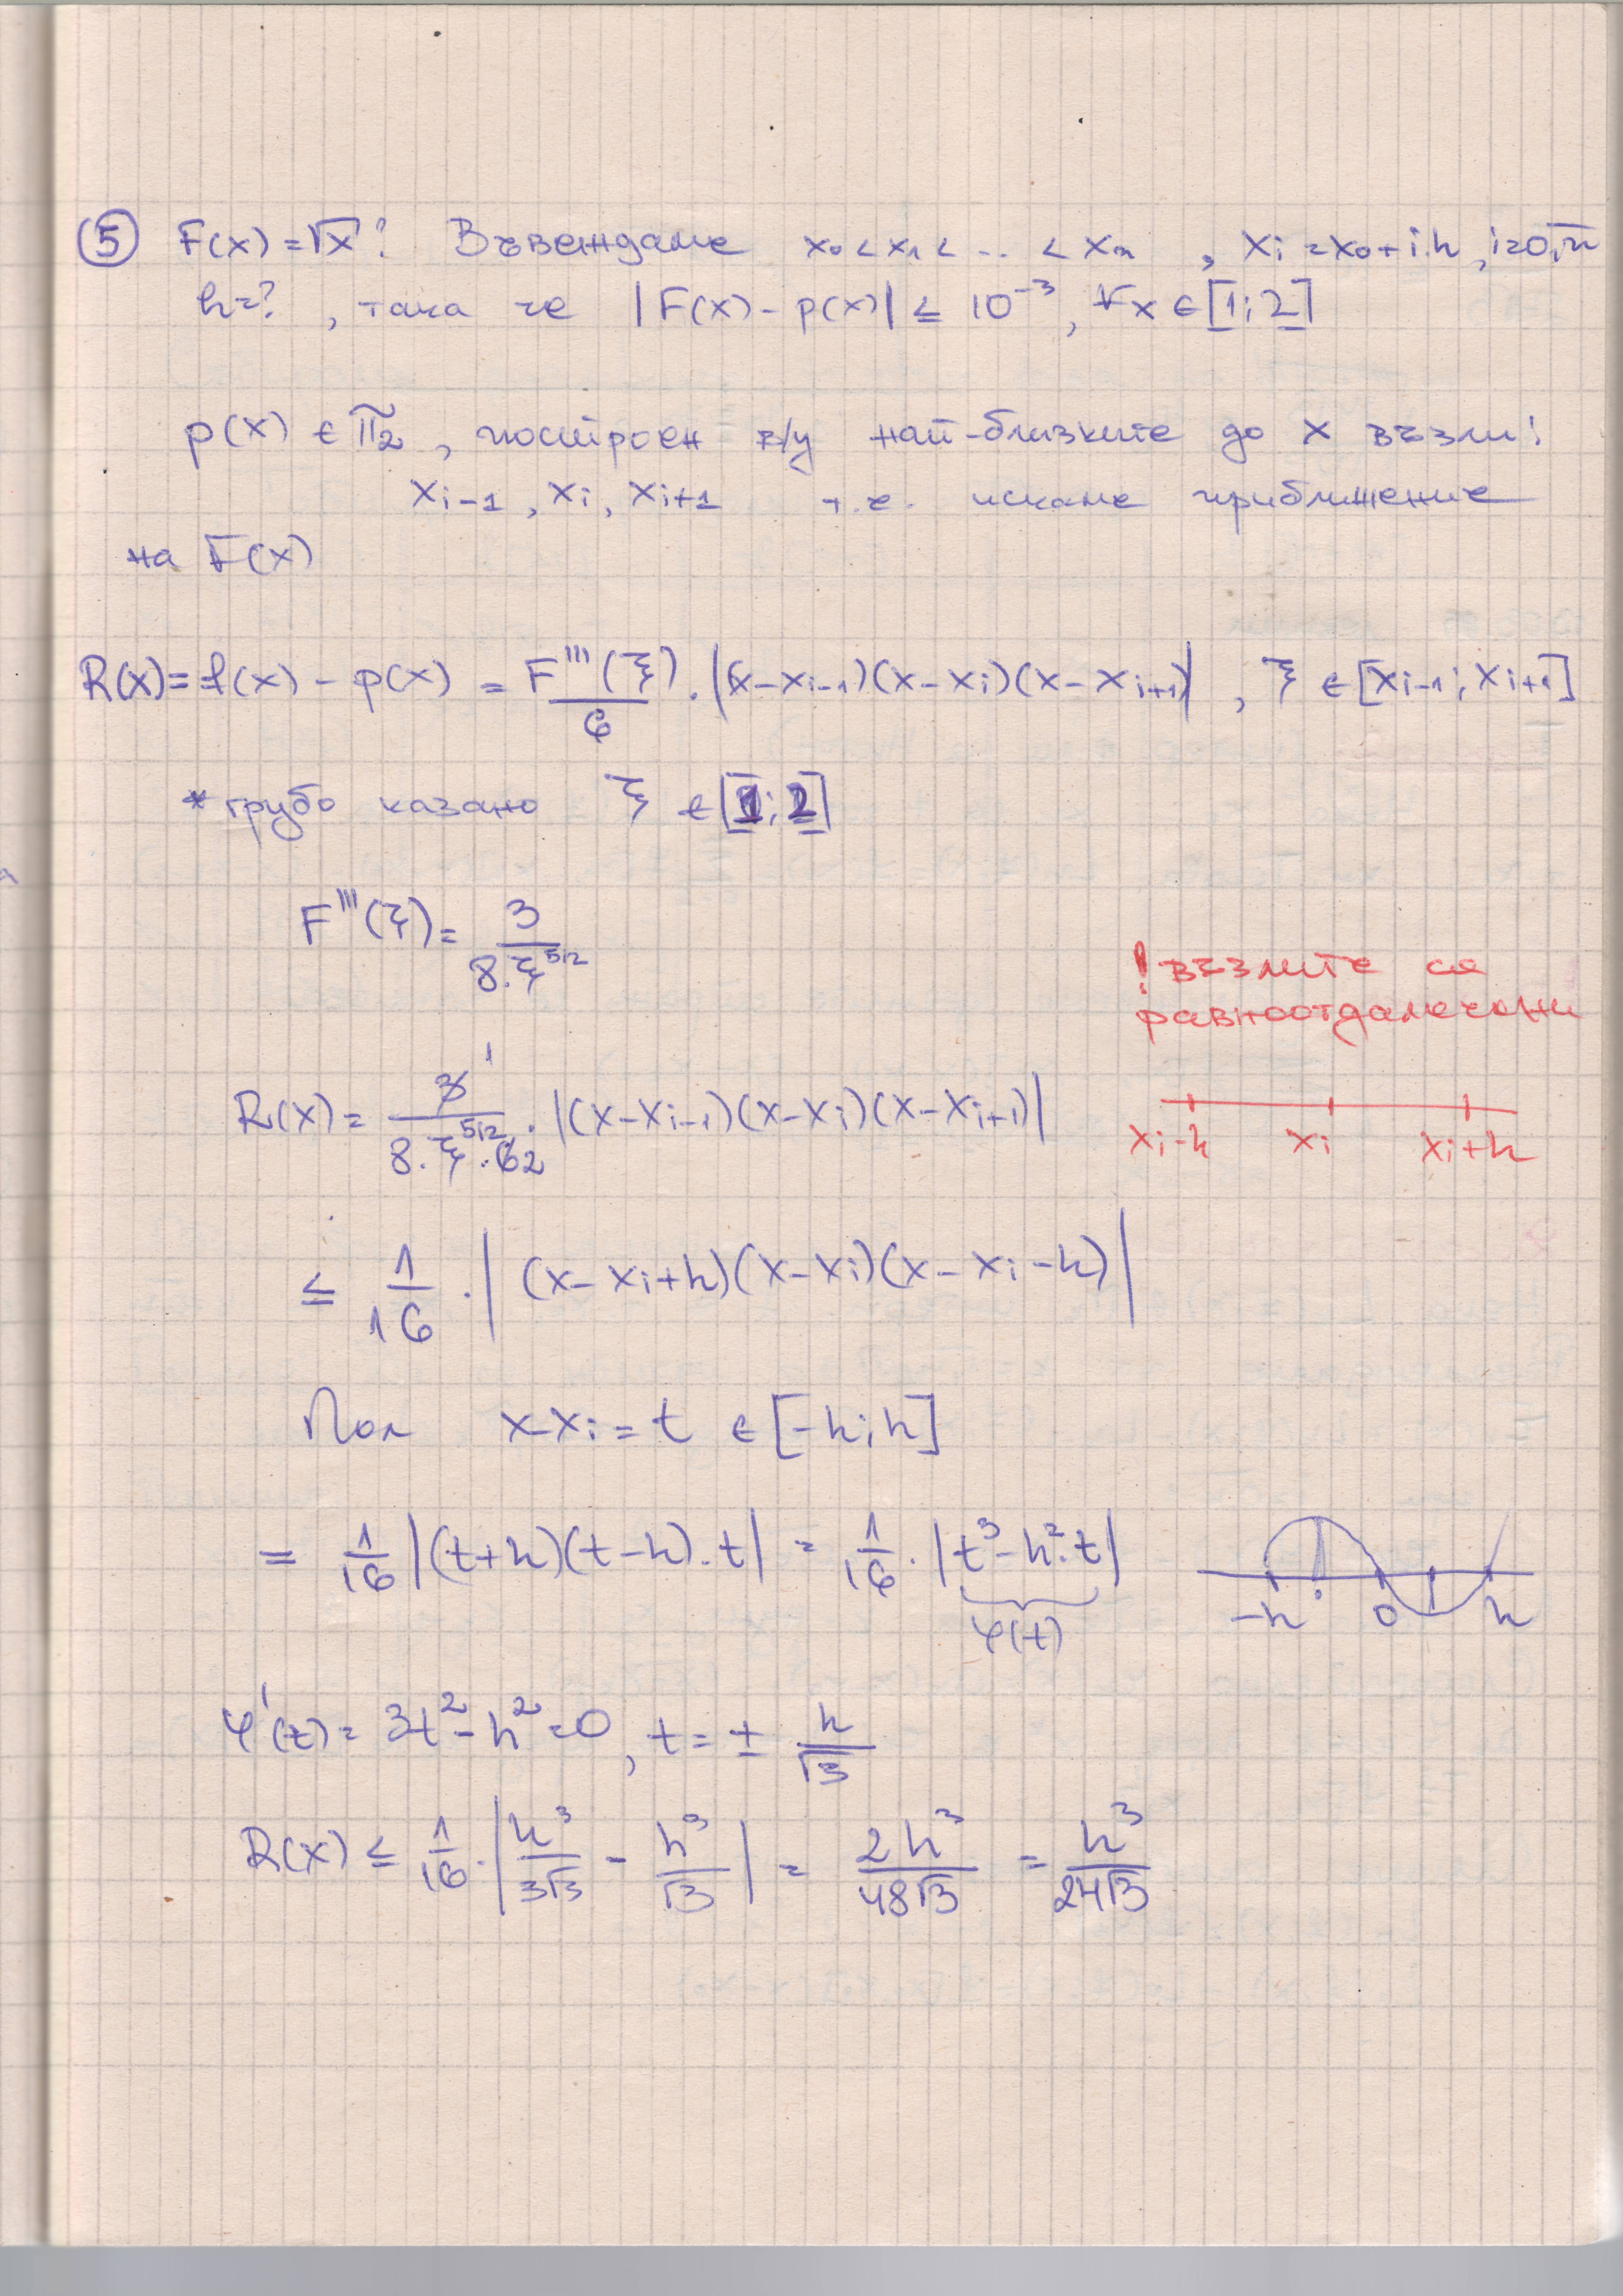 ⑤ F(x) = √x ? Въвеждаме x₀ < x₁ < ... < xₙ , xᵢ = x₀ + i.h , i=0,n̅
h=? , така че |F(x) - p(x)| ≤ 10⁻³, ∀x ∈ [1; 2]
p(x) ∈ π̃₂ , построен в/у най-близките до x възли:
xᵢ₋₁ , xᵢ , xᵢ₊₁ т.е. искаме приближение
на F(x)
R(x) = f(x) - p(x) = F'''(ξ)/6 . |(x-xᵢ₋₁)(x-xᵢ)(x-xᵢ₊₁)| , ξ ∈ [xᵢ₋₁; xᵢ₊₁]
* грубо казано ξ ∈ [1; 2]
F'''(ξ) = 3/(8.ξ^(5/2))
! възлите са
равноотдалечени
R(x) = 3̸ 1/(8.ξ^(5/2).6̸ 2) . |(x-xᵢ₋₁)(x-xᵢ)(x-xᵢ₊₁)|
xᵢ-h xᵢ xᵢ+h
≤ 1/16 . |(x-xᵢ+h)(x-xᵢ)(x-xᵢ-h)|
Пол x-xᵢ = t ∈ [-h; h]
= 1/16 |(t+h)(t-h).t| = 1/16 . |t³-h².t|
φ(t)
-h 0 h
φ'(t) = 3t²-h² = 0 , t = ± h/√3
R(x) ≤ 1/16 . |h³/(3√3) - h³/√3| = 2h³/(48√3) = h³/(24√3)